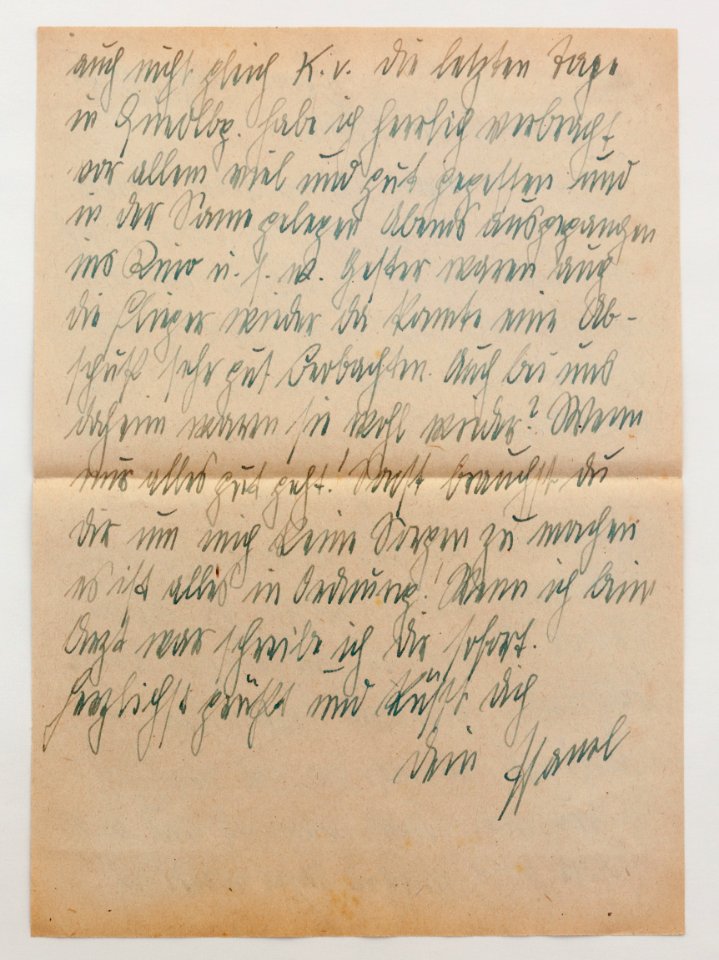 auch nicht gleich K. v. die letzten Tage
in Quedlbg. habe ich herrlich verbracht
vor allem viel und gut gegessen und
in der Sonne gelegen Abends ausgegangen
ins Kino u. s. w. Gester waren auch
die Flieger wieder da konnte eine Ab-
schuß sehr gut beobachten. Auch bei uns
daheim waren sie wohl wieder? Wenn
nur alles gut geht! Sonst brauchst du
dir um mich keine Sorgen zu machen
es ist alles in Ordnung! Wenn ich beim
Arzt war schreibe ich dir sofort.
Herzlichst grüßt und küßt dich
dein